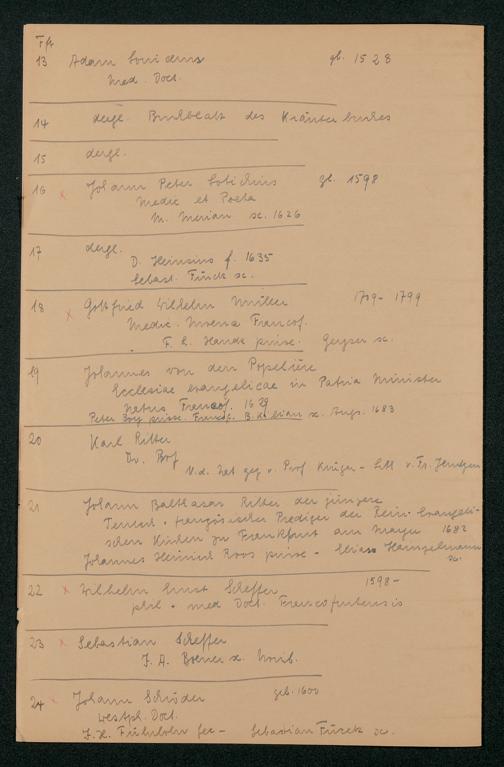 Ffr.
13 Adam Lonicerus gb. 1528
Med. Doct.
14 dergl. Buchblatt des Kräuterbuches
15 dergl.
16 x Johann Peter Lotichius gb. 1598
Medic et Poeta
M. Merian sc. 1626
17 dergl.
D. Heinsius f. 1635
Sebast. Furck sc.
18 x Gottfried Wilhelm Müller 1709 - 1799
Medic. Francof.
F. L. Hauck pinx. Geyser sc.
19 Johannes von den Popeliere
Ecclesiae evangelicae in Patria Minister
natus Francof. 1629
Peter Boy pinx. Francof. B. Kilian sc. Aug. 1683
20 Karl Ritter
Dr. Prof
N. d. Nat gez v. Prof Krüger - Lith v. Fr. Jentzen
21 Johann Balthasar Ritter der jüngere
Teutsch - französischer Prediger der Rein Evangeli-
schen Kirchen zu Frankfurt am Mayn 1682
Johannes Heinrich Roos pinx - Elias Hainzelmann
sc.
22 x Wilhelm Ernst Scheffer 1598 -
phil. med Doct. Francofurtensis
23 x Sebastian Scheffer
J. A. Boener sc. Norib.
24 x Johann Schröder geb. 1600
Westph. Doct.
Sebastian Furck sc.